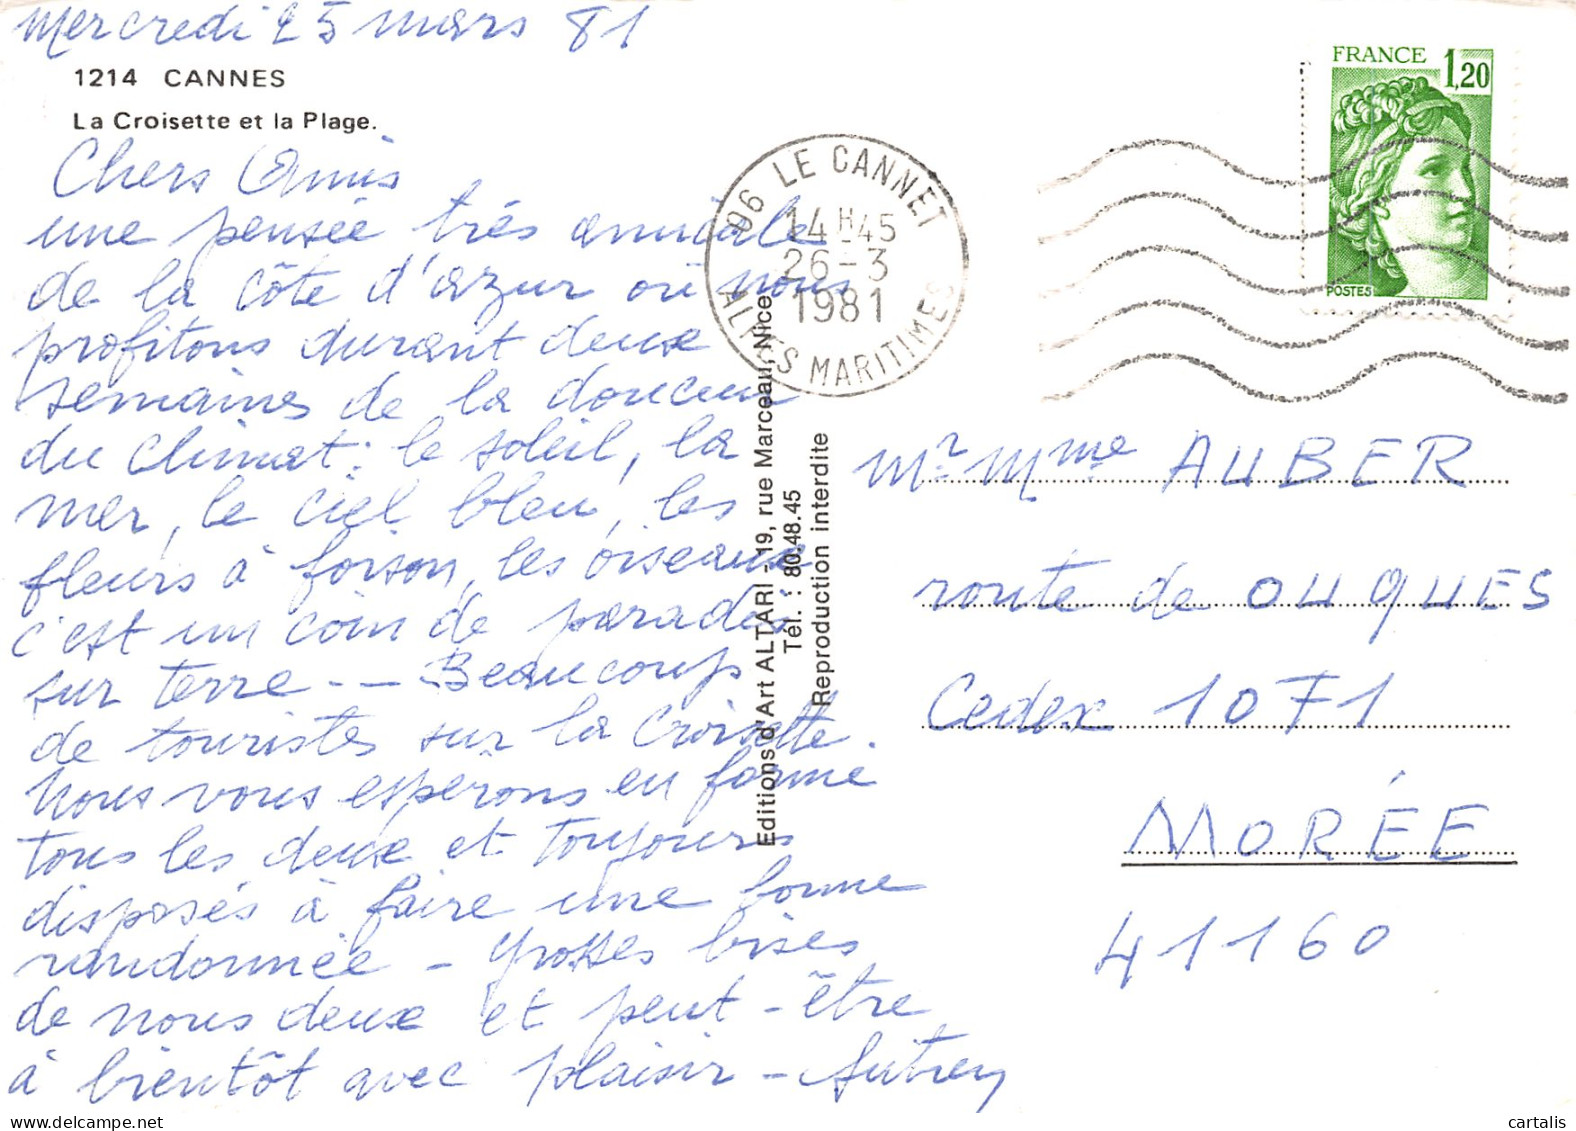 Mercredi 25 mars 81
1214 CANNES
La Croisette et la Plage.
Chers Amis
une pensée très amicale
de la côte d'azur où nous
profitons durant deux
semaines de la douceur
du climat : le soleil, la
mer, le ciel bleu, les
fleurs à foison, les oiseaux
c'est un coin de paradis
sur terre -- Beaucoup
de touristes sur la Croisette.
Nous vous espérons en forme
tous les deux et toujours
disposés à faire une bonne
randonnée - grosses bises
de nous deux et peut-être
à bientôt avec plaisir -
Editions d'Art ALTARI - 19, rue Marceau, Nice
Tél. : 80.48.45
Reproduction interdite
06 LE CANNET
14H45
26-3
1981
ALPES MARITIMES
FRANCE 1,20
POSTES
Mr Mme AUBER
route de OUQUES
Cedex 1071
MORÉE
41160
cartalis
delcampe.net